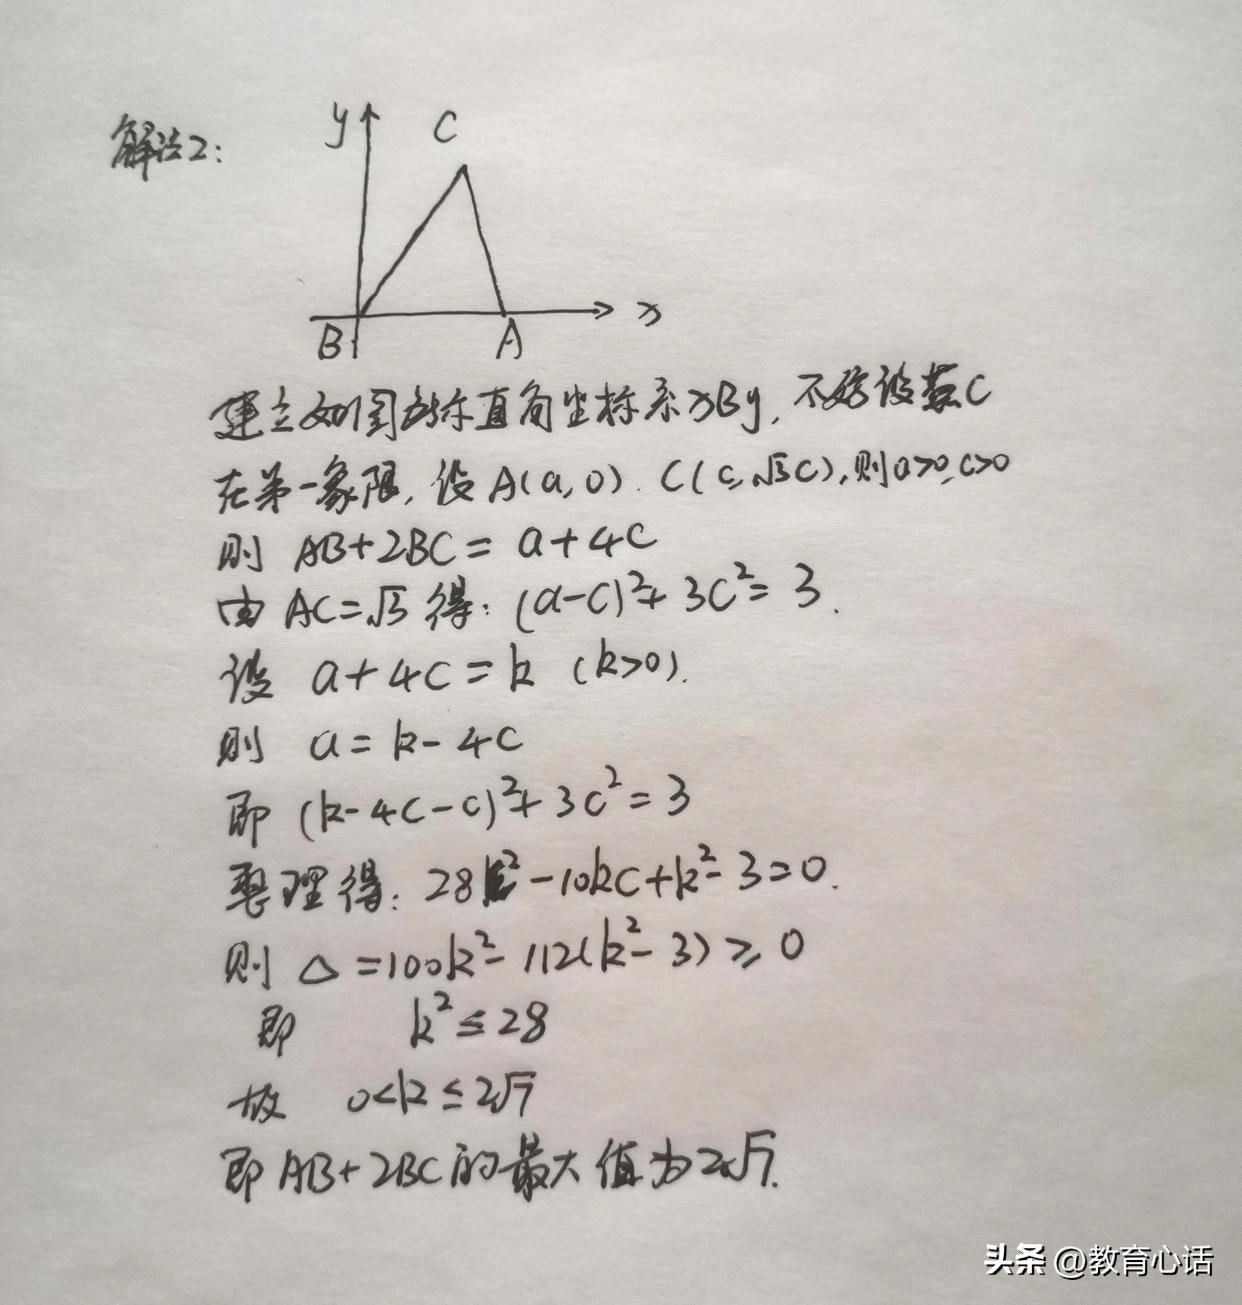 解法2:
y
C
B
A
x
建立如图所示直角坐标系xBy,不妨设点C
在第一象限,设A(a,0).C(c,√3c),则a>0,c>0
则 AB+2BC=a+4c
由 AC=√3 得:(a-c)²+3c²=3.
设 a+4c=k (k>0).
则 a=k-4c
即 (k-4c-c)²+3c²=3
整理得:28c²-10kc+k²-3=0.
则 △=100k²-112(k²-3)≥0
即 k²≤28
故 0<k≤2√7
即 AB+2BC的最大值为2√7.
头条 @教育心话